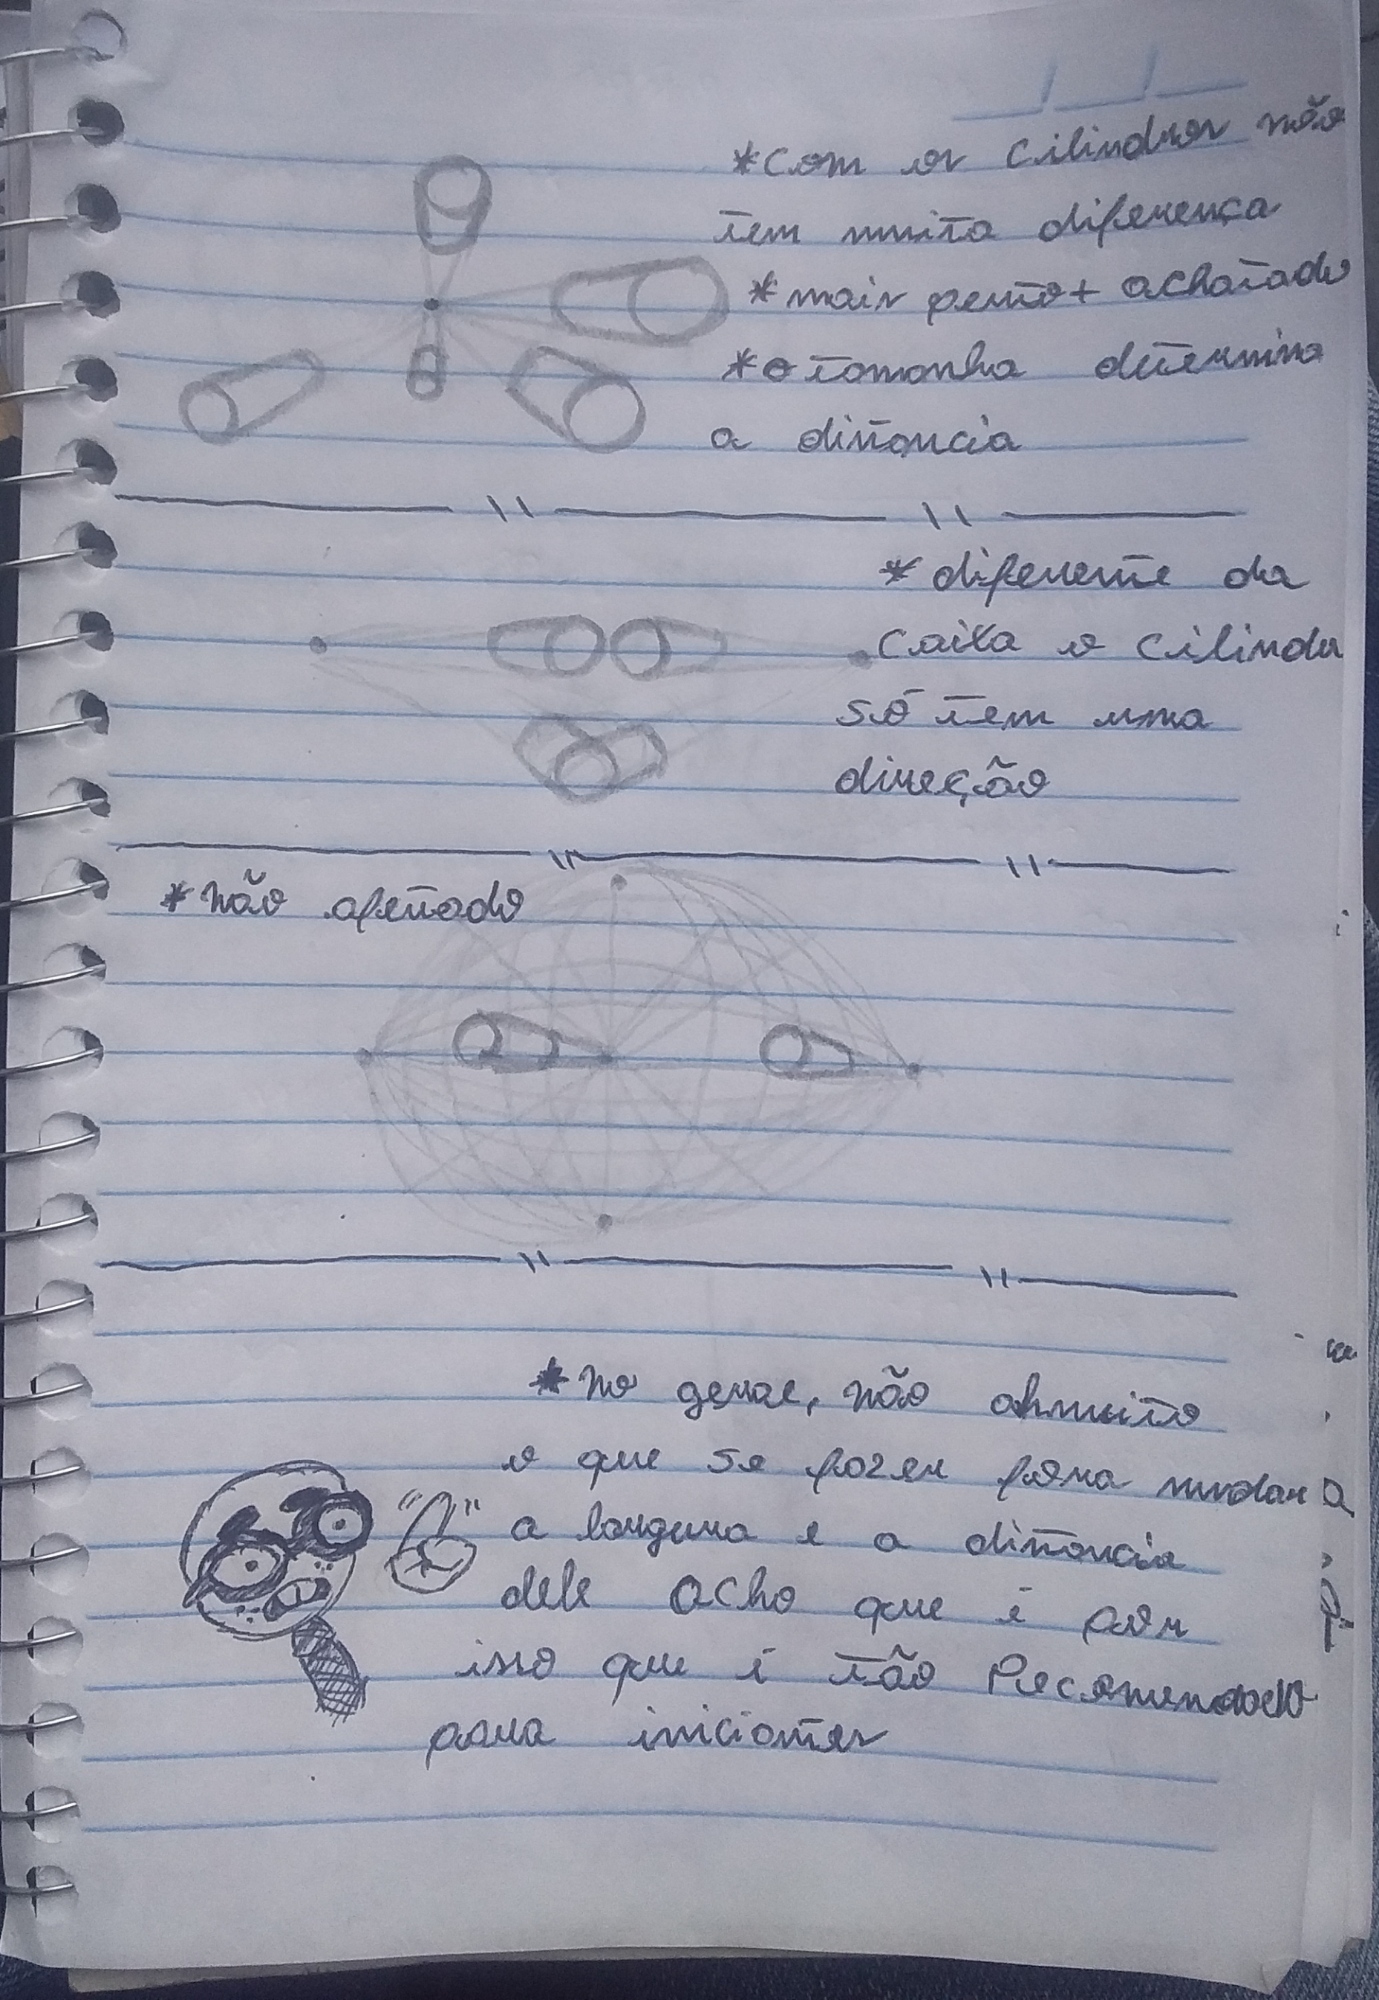 *com os cilindros não
tem muita diferença
*mais perto + achatado
*o tamanho determina
a distancia
* diferente da
caixa o cilindro
só tem uma
direção
*não afetado
*no geral, não há muito
o que se fazer fora mudar
a largura e a distancia
dele acho que é por
isso que é tão Recomendado
para iniciantes